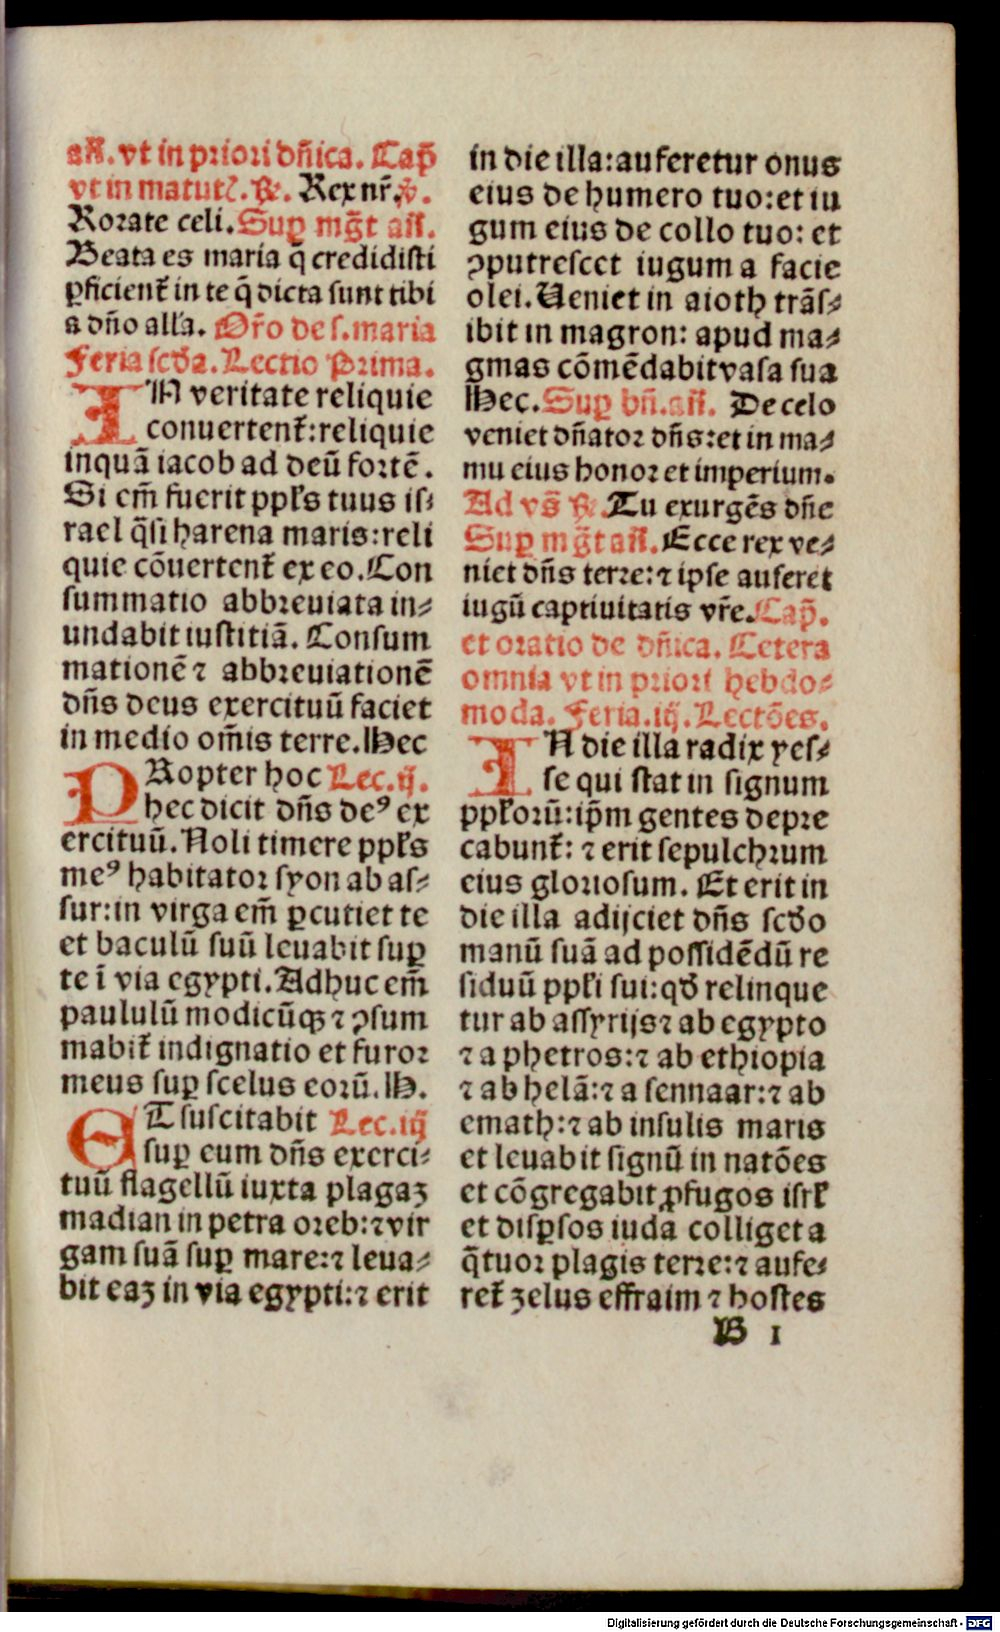 añ. vt in priori dñica. Cap̄
vt in matutꝭ. ℞. Rex nr̄. ℣.
Rorate celi. Suꝑ mg̃t añ.
Beata es maria q̄ credidisti
ꝑficient᷑ in te q̄ dicta sunt tibi
a dño alla. Or̄o de s. maria
Feria scd̄a. Lectio Prima.
IN veritate reliquie
conuertent᷑: reliquie
inquā iacob ad deū fortē.
Si em̄ fuerit ppl̄s tuus is⸗
rael q̄si harena maris: reli
quie cōuertent᷑ ex eo. Con
summatio abbreuiata in⸗
undabit iustitiā. Consum
mationē ⁊ abbreuiationē
dñs deus exercituū faciet
in medio om̄is terre. Hec
PRopter hoc Lec. ij.
hec dicit dñs deꝰ ex
ercituū. Noli timere ppl̄s
meꝰ habitator syon ab as⸗
sur: in virga em̄ ꝑcutiet te
et baculū suū leuabit suꝑ
te ī via egypti. Adhuc em̄
paululū modicūqꝫ ⁊ ꝯsum
mabit᷑ indignatio et furor
meus suꝑ scelus eorū. H.
ET suscitabit Lec. iij
suꝑ eum dñs exerci⸗
tuū flagellū iuxta plagaꝫ
madian in petra oreb: ⁊ vir
gam suā suꝑ mare: ⁊ leua⸗
bit eaꝫ in via egypti: ⁊ erit
in die illa: auferetur onus
eius de humero tuo: et iu
gum eius de collo tuo: et
ꝯputrescet iugum a facie
olei. Ueniet in aioth trās⸗
ibit in magron: apud ma⸗
gmas cōmēdabit vasa sua
Hec. Suꝑ bñ. añ. De celo
veniet dñator dñs: et in ma⸗
nu eius honor et imperium.
Ad vs̄ ℞. Tu exurgēs dñe
Suꝑ mg̃t añ. Ecce rex ve⸗
niet dñs terre: ⁊ ipse auferet
iugū captiuitatis vr̄e. Cap̄.
et oratio de dñica. Cetera
omnia vt in priori hebdo⸗
moda. Feria. iij. Lectōes.
IN die illa radix yes⸗
se qui stat in signum
ppl̄orū: ip̄m gentes depre
cabunt᷑: ⁊ erit sepulchrum
eius gloriosum. Et erit in
die illa adijciet dñs scd̄o
manū suā ad possidēdū re
siduū ppl̄i sui: qd̄ relinque
tur ab assyrijs ⁊ ab egypto
⁊ a phetros: ⁊ ab ethiopia
⁊ ab helā: ⁊ a sennaar: ⁊ ab
emath: ⁊ ab insulis maris
et leuabit signū in natōes
et cōgregabit ꝓfugos isrl̄
et disꝑsos iuda colliget a
q̄tuor plagis terre: ⁊ aufe⸗
ret᷑ zelus effraim ⁊ hostes
B 1
Digitalisierung gefördert durch die Deutsche Forschungsgemeinschaft - DFG